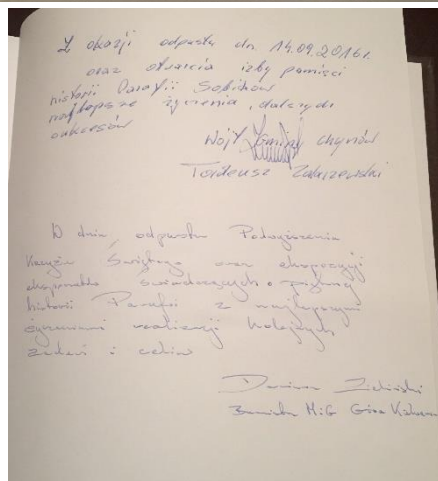 Z okazji odpustu dn. 14.09.2016r.
oraz otwarcia izby pamięci
historii Parafii Sobików
najlepsze życzenia, dalszych
sukcesów
Wójt Gminy Chynów
Tadeusz Zakrzewski
W dniu odpustu Podwyższenia
Krzyża Świętego oraz ekspozycji
eksponatów świadczących o pięknej
historii Parafii z najlepszymi
życzeniami realizacji kolejnych
zadań i celów
Dariusz Zieliński
Burmistrz MiG Góra Kalwaria